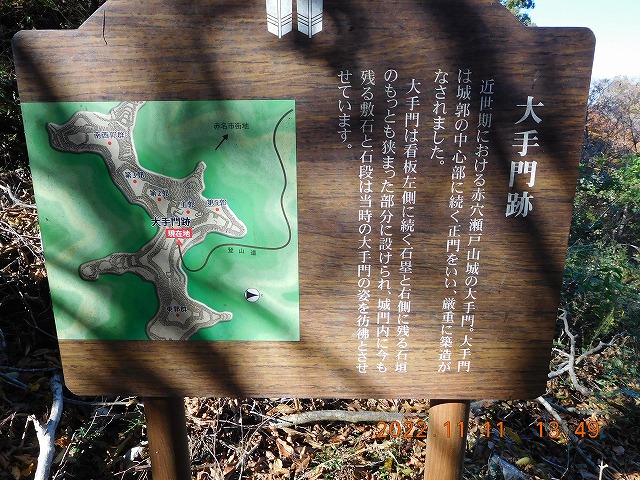 大手門跡
近世期における赤穴瀬戸山城の大手門。大手門
は城郭の中心部に続く正門をいい、厳重に築造が
なされました。
大手門は看板左側に続く石塁と右側に残る石垣
のもっとも狭まった部分に設けられ、城門内に今も
残る敷石と石段は当時の大手門の姿を彷彿とさせ
せています。
赤名市街地
南西郭群
第3郭
第2郭
主郭
第5郭
大手門跡
現在地
登山道
東郭群
2022 11 11 13 49